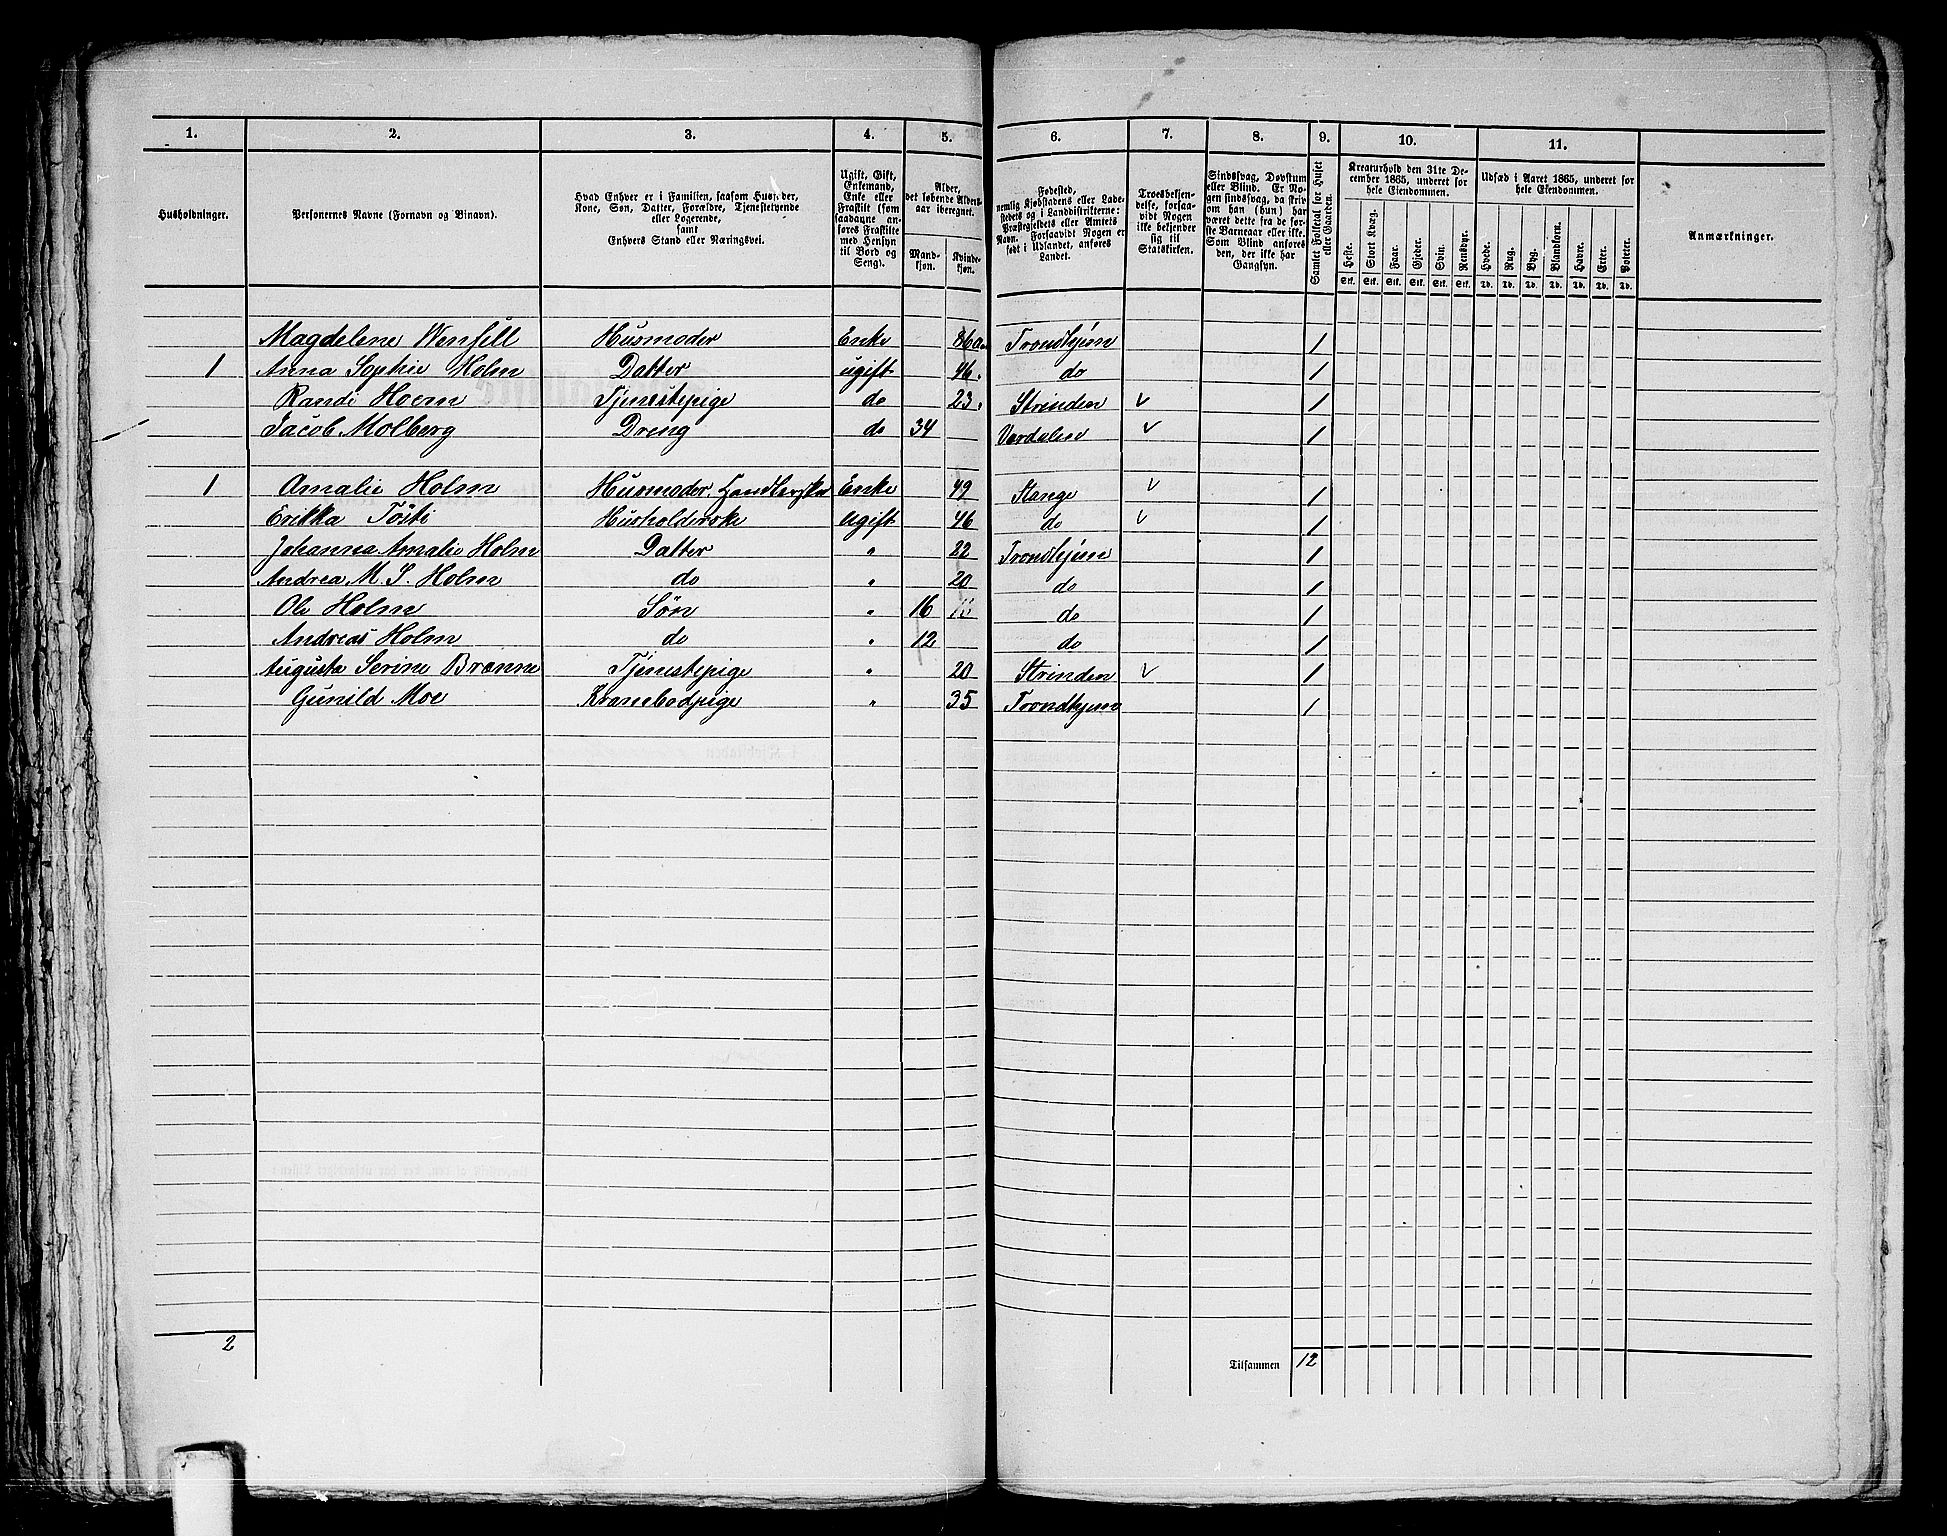 1. 2. 3. 4. 5. 6. 7. 8. 9. 10. 11.
Husholdninger.
Personernes Navne (Fornavn og Binavn).
Hvad Enhver er i Familien, saasom Husfader, Kone, Søn, Datter, Forældre, Tjenestetyende eller Logerende, samt Enhvers Stand eller Næringsvei.
Ugift, Gift, Enkemand, Enke eller Fraskilt (som saadanne anføres Fraskilte med Hensyn til Bord og Seng).
Alder, det løbende Alders-aar iberegnet.
Mand-kjøn. Kvinde-kjøn.
Fødested, nemlig Kjøbstadens eller Ladestedets og i Landdistrikterne: Præstegjeldets eller Amtets Navn. Forsaavidt Nogen er født i Udlandet, anføres Landet.
Troesbekjendelse, forsaavidt Nogen ikke bekjender sig til Statskirken.
Sindssvag, Døvstum eller Blind. Er Nogen sindssvag, da skrives om han (hun) har været dette fra de første Barneaar eller ikke. Som Blind anføres den, der ikke har Gangsyn.
Samlet Folketal for Huset eller Gaarden.
Kreaturhold den 31te December 1865, underet for hele Eiendommen.
Heste. Stort Kvæg. Faar. Gjeder. Svin. Rensdyr.
Stk. Stk. Stk. Stk. Stk. Stk.
Udsæd i Aaret 1865, underet for hele Eiendommen.
Hvede. Rug. Byg. Blandkorn. Havre. Erter. Poteter.
Td. Td. Td. Td. Td. Td. Td.
Anmærkninger.
Magdelene Wensell Husmoder Enke 86 Trondhjem 1
1 Anna Sophie Holm Datter ugift 46 do 1
Randi Hoem Tjenestepige do 23 Strinden 1
Jacob Molberg Dreng do 34 Værdalen 1
1 Amalie Holm Husmoder. Handlerske Enke 49 Stange 1
Erikka Tosti Husholderske Ugift 46 do 1
Johanna Amalie Holm Datter " 22 Trondhjem 1
Andrea M. S. Holm do " 20 do 1
Ole Holm Søn " 16 do 1
Andreas Holm do " 12 do 1
Augusta Serine Brænne Tjenestepige " 20 Strinden 1
Gunild Moe Krambodpige " 35 Trondhjem 1
2
Tilsammen 12